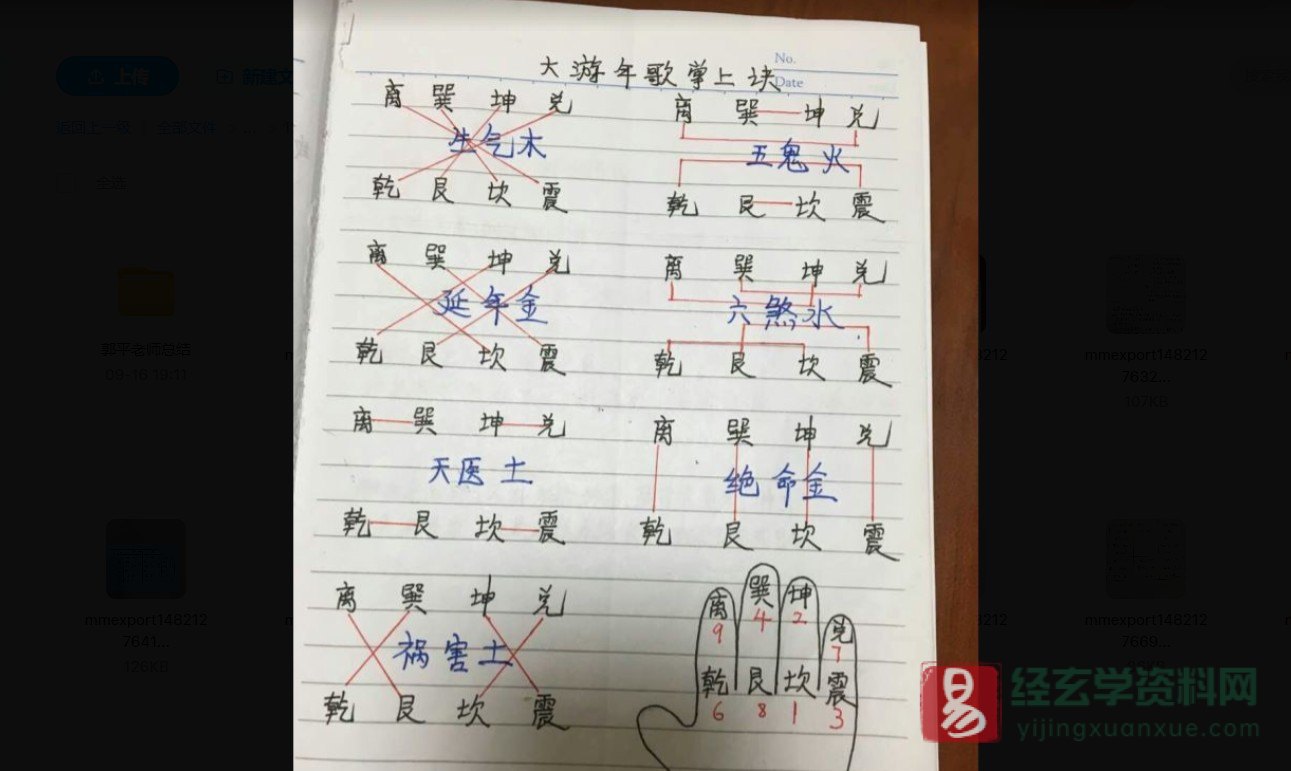 上传
新建文
返回上一级
全部文件
全选
郭平老师总结
09-16 19:11
mmexport148212
7641...
126KB
No.
Date
大游年歌掌上诀
离 巽 坤 兑
生气木
乾 艮 坎 震
离 巽 坤 兑
五鬼火
乾 艮 坎 震
离 巽 坤 兑
延年金
乾 艮 坎 震
离 巽 坤 兑
六煞水
乾 艮 坎 震
离 巽 坤 兑
天医土
乾 艮 坎 震
离 巽 坤 兑
绝命金
乾 艮 坎 震
离 巽 坤 兑
祸害土
乾 艮 坎 震
离 巽 坤 兑
9 4 2 7
乾 艮 坎 震
6 8 1 3
8212
2KB
mmexport148212
7632...
107KB
mmexport148212
7669...
易
经玄学资料网
yijingxuanxue.com